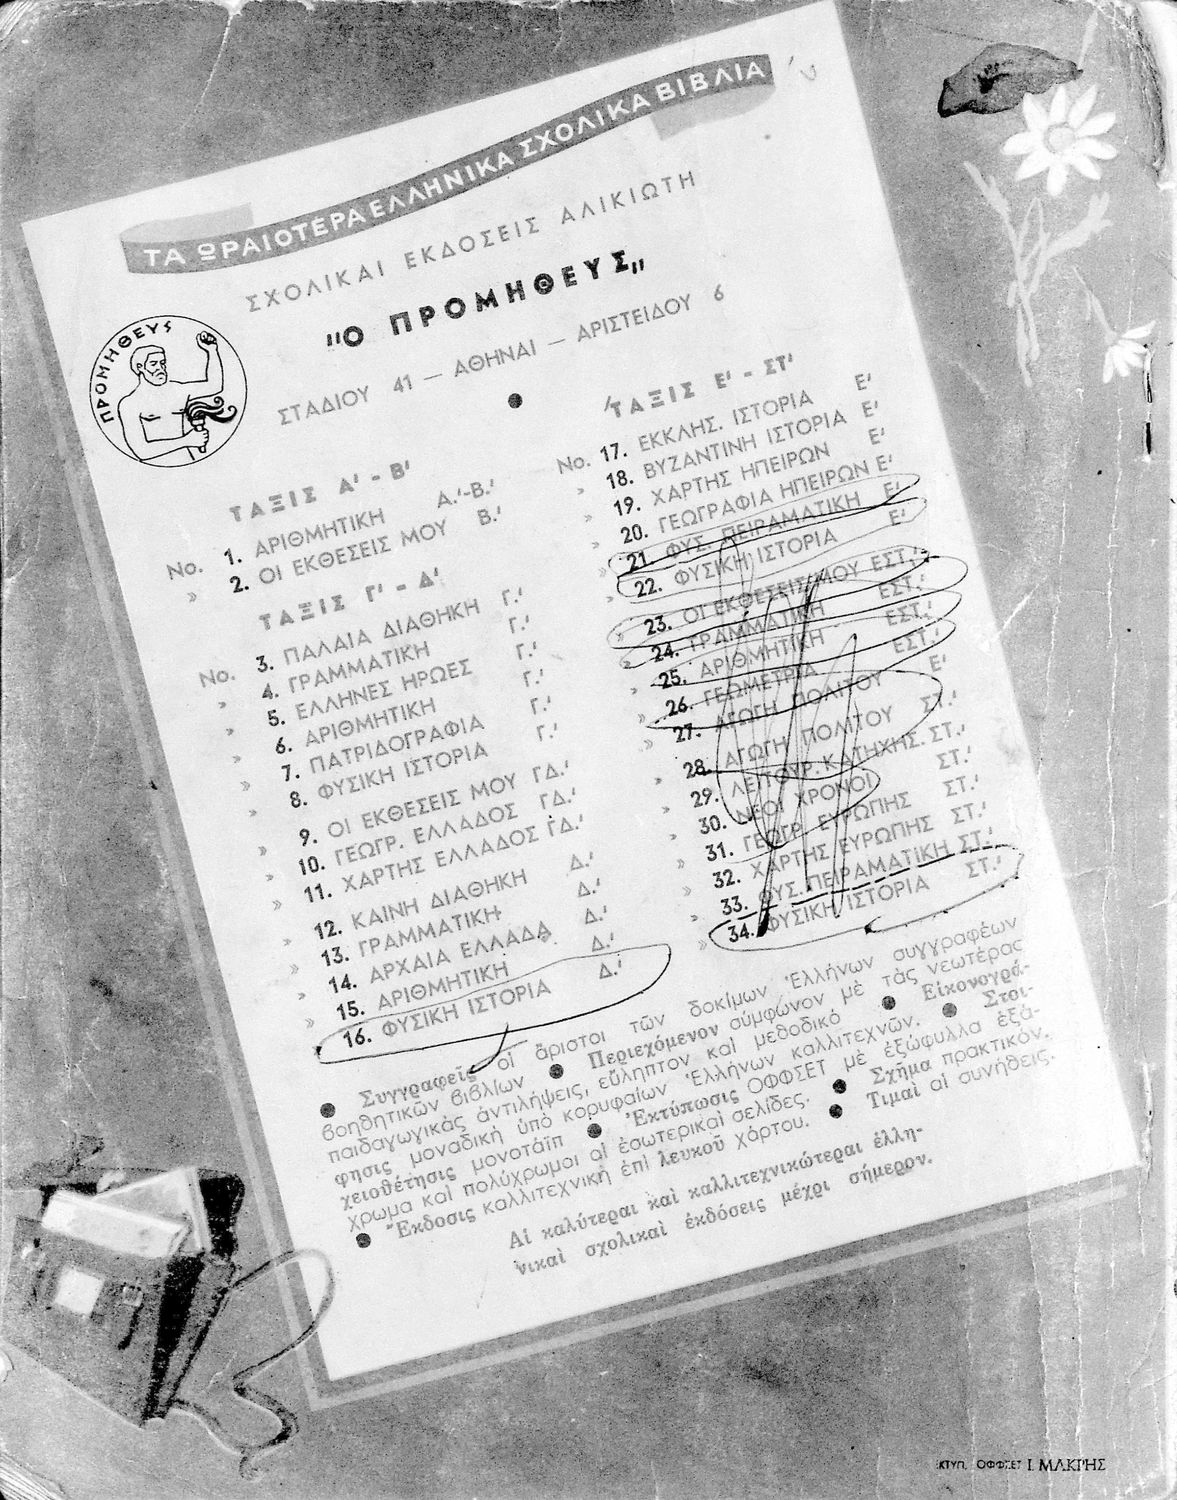 ΤΑ ΩΡΑΙΟΤΕΡΑ ΕΛΛΗΝΙΚΑ ΣΧΟΛΙΚΑ ΒΙΒΛΙΑ
ΣΧΟΛΙΚΑΙ ΕΚΔΟΣΕΙΣ ΑΛΙΚΙΩΤΗ
"Ο ΠΡΟΜΗΘΕΥΣ"
ΣΤΑΔΙΟΥ 41 — ΑΘΗΝΑΙ — ΑΡΙΣΤΕΙΔΟΥ 6
ΠΡΟΜΗΘΕΥΣ
ΤΑΞΙΣ Α' - Β'
No. 1. ΑΡΙΘΜΗΤΙΚΗ Α.'-Β.'
» 2. ΟΙ ΕΚΘΕΣΕΙΣ ΜΟΥ Β.'
ΤΑΞΙΣ Γ' - Δ'
No. 3. ΠΑΛΑΙΑ ΔΙΑΘΗΚΗ Γ.'
» 4. ΓΡΑΜΜΑΤΙΚΗ Γ.'
» 5. ΕΛΛΗΝΕΣ ΗΡΩΕΣ Γ.'
» 6. ΑΡΙΘΜΗΤΙΚΗ Γ.'
» 7. ΠΑΤΡΙΔΟΓΡΑΦΙΑ Γ.'
» 8. ΦΥΣΙΚΗ ΙΣΤΟΡΙΑ Γ.'
» 9. ΟΙ ΕΚΘΕΣΕΙΣ ΜΟΥ ΓΔ.'
» 10. ΓΕΩΓΡ. ΕΛΛΑΔΟΣ ΓΔ.'
» 11. ΧΑΡΤΗΣ ΕΛΛΑΔΟΣ ΓΔ.'
» 12. ΚΑΙΝΗ ΔΙΑΘΗΚΗ Δ.'
» 13. ΓΡΑΜΜΑΤΙΚΗ Δ.'
» 14. ΑΡΧΑΙΑ ΕΛΛΑΔΑ Δ.'
» 15. ΑΡΙΘΜΗΤΙΚΗ Δ.'
16. ΦΥΣΙΚΗ ΙΣΤΟΡΙΑ Δ.'
ΤΑΞΙΣ Ε' - ΣΤ'
No. 17. ΕΚΚΛΗΣ. ΙΣΤΟΡΙΑ Ε'
» 18. ΒΥΖΑΝΤΙΝΗ ΙΣΤΟΡΙΑ Ε'
» 19. ΧΑΡΤΗΣ ΗΠΕΙΡΩΝ Ε'
» 20. ΓΕΩΓΡΑΦΙΑ ΗΠΕΙΡΩΝ Ε'
» 21. ΦΥΣ. ΠΕΙΡΑΜΑΤΙΚΗ Ε'
» 22. ΦΥΣΙΚΗ ΙΣΤΟΡΙΑ Ε'
» 23. ΟΙ ΕΚΘΕΣΕΙΣ ΜΟΥ ΕΣΤ.'
» 24. ΓΡΑΜΜΑΤΙΚΗ ΕΣΤ.'
» 25. ΑΡΙΘΜΗΤΙΚΗ ΕΣΤ.'
» 26. ΓΕΩΜΕΤΡΙΑ ΕΣΤ.'
» 27. ΑΓΩΓΗ ΠΟΛΙΤΟΥ Ε'
» 28. ΑΓΩΓΗ ΠΟΛΙΤΟΥ ΣΤ.'
» 29. ΛΕΙΤΟΥΡ. ΚΑΤΗΧΗΣ. ΣΤ.'
» 30. ΝΕΟΙ ΧΡΟΝΟΙ ΣΤ.'
» 31. ΓΕΩΓΡ. ΕΥΡΩΠΗΣ ΣΤ.'
» 32. ΧΑΡΤΗΣ ΕΥΡΩΠΗΣ ΣΤ.'
» 33. ΦΥΣ. ΠΕΙΡΑΜΑΤΙΚΗ ΣΤ.'
» 34. ΦΥΣΙΚΗ ΙΣΤΟΡΙΑ ΣΤ.'
● Συγγραφεῖς οἱ ἄριστοι τῶν δοκίμων Ἑλλήνων συγγραφέων
βοηθητικῶν βιβλίων ● Περιεχόμενον σύμφωνον μὲ τὰς νεωτέρας
παιδαγωγικὰς ἀντιλήψεις, εὔληπτον καὶ μεθοδικὸ ● Εἰκονογρά-
φησις μοναδικὴ ὑπὸ κορυφαίων Ἑλλήνων καλλιτεχνῶν. ● Στοι-
χειοθέτησις μονοτάϊπ ● Ἐκτύπωσις ΟΦΦΣΕΤ μὲ ἐξώφυλλα ἑξά-
χρωμα καὶ πολύχρωμοι αἱ ἐσωτερικαὶ σελίδες. ● Σχῆμα πρακτικόν.
● Ἔκδοσις καλλιτεχνικὴ ἐπὶ λευκοῦ χάρτου. ● Τιμαὶ αἱ συνήθεις.
Αἱ καλύτεραι καὶ καλλιτεχνικώτεραι ἑλλη-
νικαὶ σχολικαὶ ἐκδόσεις μέχρι σήμερον.
ΕΚΤΥΠ. ΟΦΦΣΕΤ Ι. ΜΑΚΡΗΣ